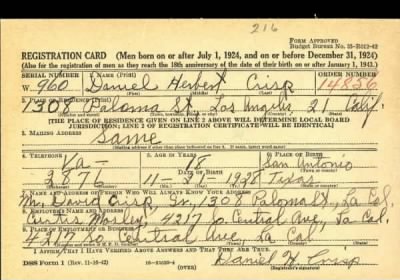 216
FORM APPROVED
Budget Bureau No. 33-R012-42
REGISTRATION CARD (Men born on or after July 1, 1924, and on or before December 31, 1924)
(Also for the registration of men as they reach the 18th anniversary of the date of their birth on or after January 1, 1943.)
SERIAL NUMBER 1. NAME (Print) ORDER NUMBER
W. 960 Daniel Herbert Crisp 14836
(First) (Middle) (Last)
2. PLACE OF RESIDENCE (Print)
1308 Paloma St. Los Angeles 21 Calif.
[THE PLACE OF RESIDENCE GIVEN ON LINE 2 ABOVE WILL DETERMINE LOCAL BOARD
JURISDICTION; LINE 2 OF REGISTRATION CERTIFICATE WILL BE IDENTICAL]
3. MAILING ADDRESS
Same
4. TELEPHONE 5. AGE IN YEARS 6. PLACE OF BIRTH
La- 18 San Antonio
3876 11-31-1928 Texas
7. NAME AND ADDRESS OF PERSON WHO WILL ALWAYS KNOW YOUR ADDRESS
Mr. David Crisp, Jr., 1308 Paloma St., La Cal,
8. EMPLOYER'S NAME AND ADDRESS
Curtis Mosley, 4217 So Central Ave, La Cal.
4217 So Central Ave, La Cal
I AFFIRM THAT I HAVE VERIFIED ABOVE ANSWERS AND THAT THEY ARE TRUE.
DSS Form 1 (Rev. 11-16-42) (OVER) Daniel H. Crisp